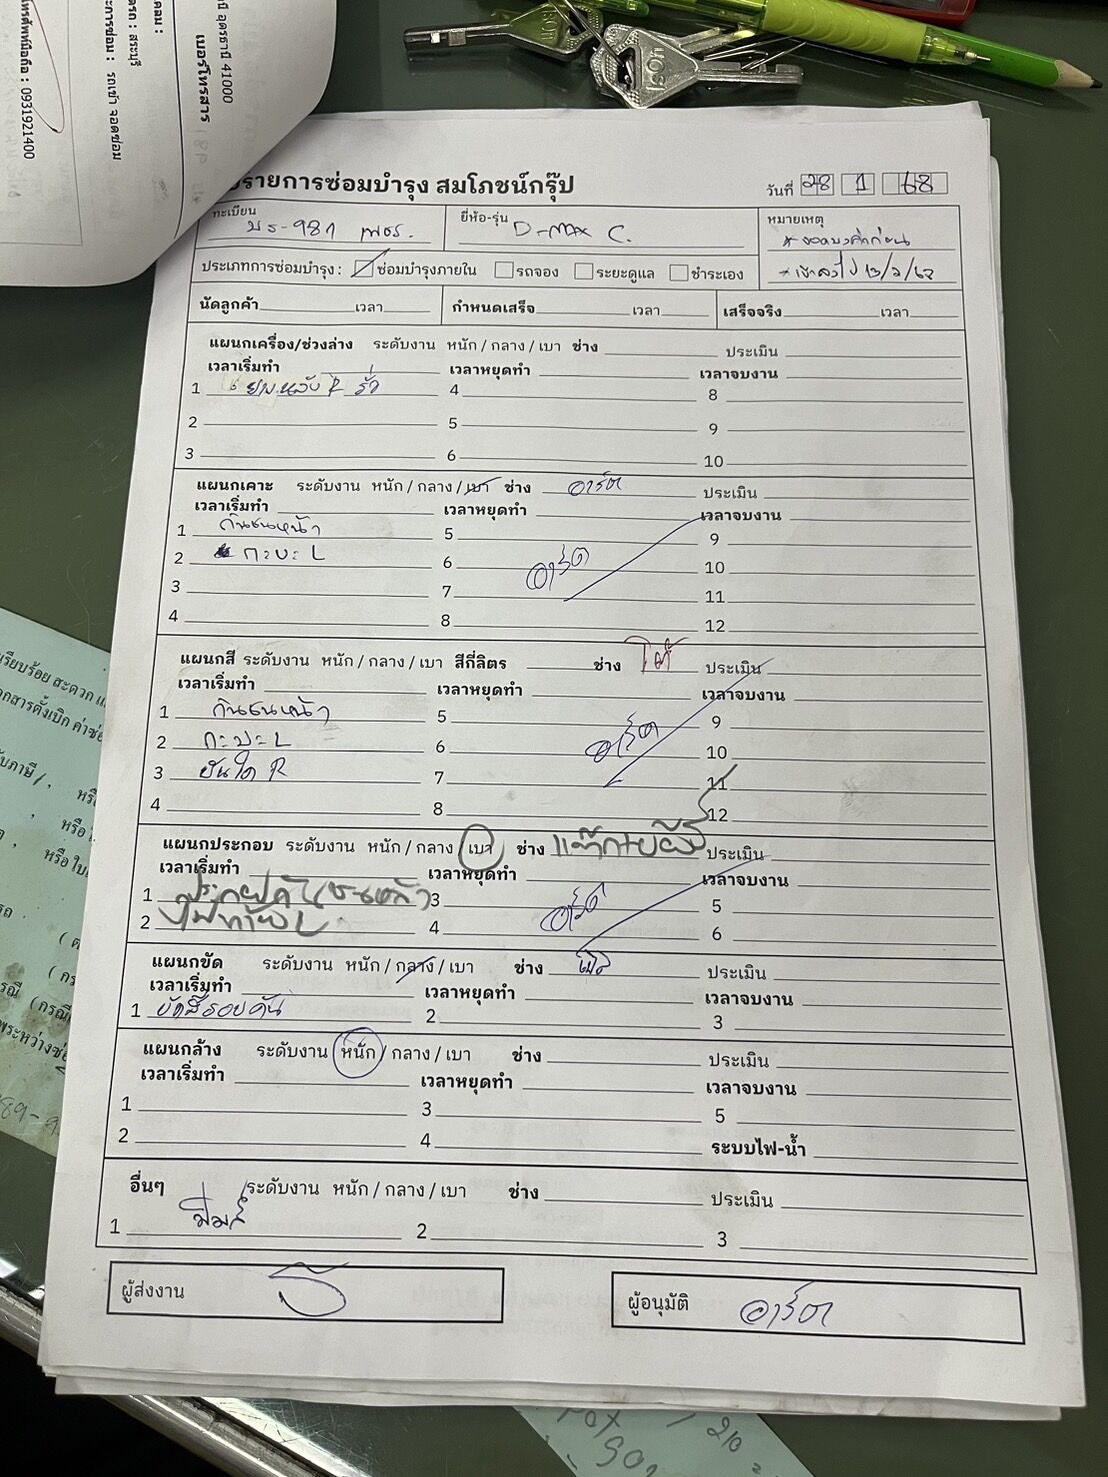 คลม :
ดรถ : สระบุรี
ะการซ่อม : รถเข้า จอดซ่อม
ทรศัพท์มือถือ : 0931921400
นี อุดรธานี 41000
เบอร์โทรสาร
รายการซ่อมบำรุง สมโภชน์กรุ๊ป
วันที่ 28 1 68
ทะเบียน บร-987 เพชร.
ยี่ห้อ-รุ่น D-max C.
หมายเหตุ
ประเภทการซ่อมบำรุง : ซ่อมบำรุงภายใน รถจอง ระยะดูแล ชำระเอง
นัดลูกค้า เวลา กำหนดเสร็จ เวลา เสร็จจริง เวลา
แผนกเครื่อง/ช่วงล่าง ระดับงาน หนัก / กลาง / เบา ช่าง ประเมิน
เวลาเริ่มทำ เวลาหยุดทำ เวลาจบงาน
1 ยางหลัง R รั่ว 4 8
2 5 9
3 6 10
แผนกเคาะ ระดับงาน หนัก / กลาง / เบา ช่าง อาร์ต ประเมิน
เวลาเริ่มทำ เวลาหยุดทำ เวลาจบงาน
1 กันชนหน้า 5 9
2 กะบะ L 6 อาร์ต 10
3 7 11
4 8 12
แผนกสี ระดับงาน หนัก / กลาง / เบา สีกี่ลิตร ช่าง ประเมิน
เวลาเริ่มทำ เวลาหยุดทำ เวลาจบงาน
1 กันชนหน้า 5 9
2 กะบะ L 6 อาร์ต 10
3 บันได R 7 11
4 8 12
แผนกประกอบ ระดับงาน หนัก / กลาง / เบา ช่าง ประเมิน
เวลาเริ่มทำ เวลาหยุดทำ เวลาจบงาน
1 ประกอบกันชนหน้า 3 อาร์ต 5
2 ไฟท้าย L 4 6
แผนกขัด ระดับงาน หนัก / กลาง / เบา ช่าง ประเมิน
เวลาเริ่มทำ เวลาหยุดทำ เวลาจบงาน
1 ขัดสีรอบคัน 2 3
แผนกล้าง ระดับงาน หนัก / กลาง / เบา ช่าง ประเมิน
เวลาเริ่มทำ เวลาหยุดทำ เวลาจบงาน
1 3 5
2 4 ระบบไฟ-น้ำ
อื่นๆ ระดับงาน หนัก / กลาง / เบา ช่าง ประเมิน
1 2 3
ผู้ส่งงาน
ผู้อนุมัติ อาร์ต
รียบร้อย สะดวก แ
กสารตั้งเบิก ค่าซ่อ